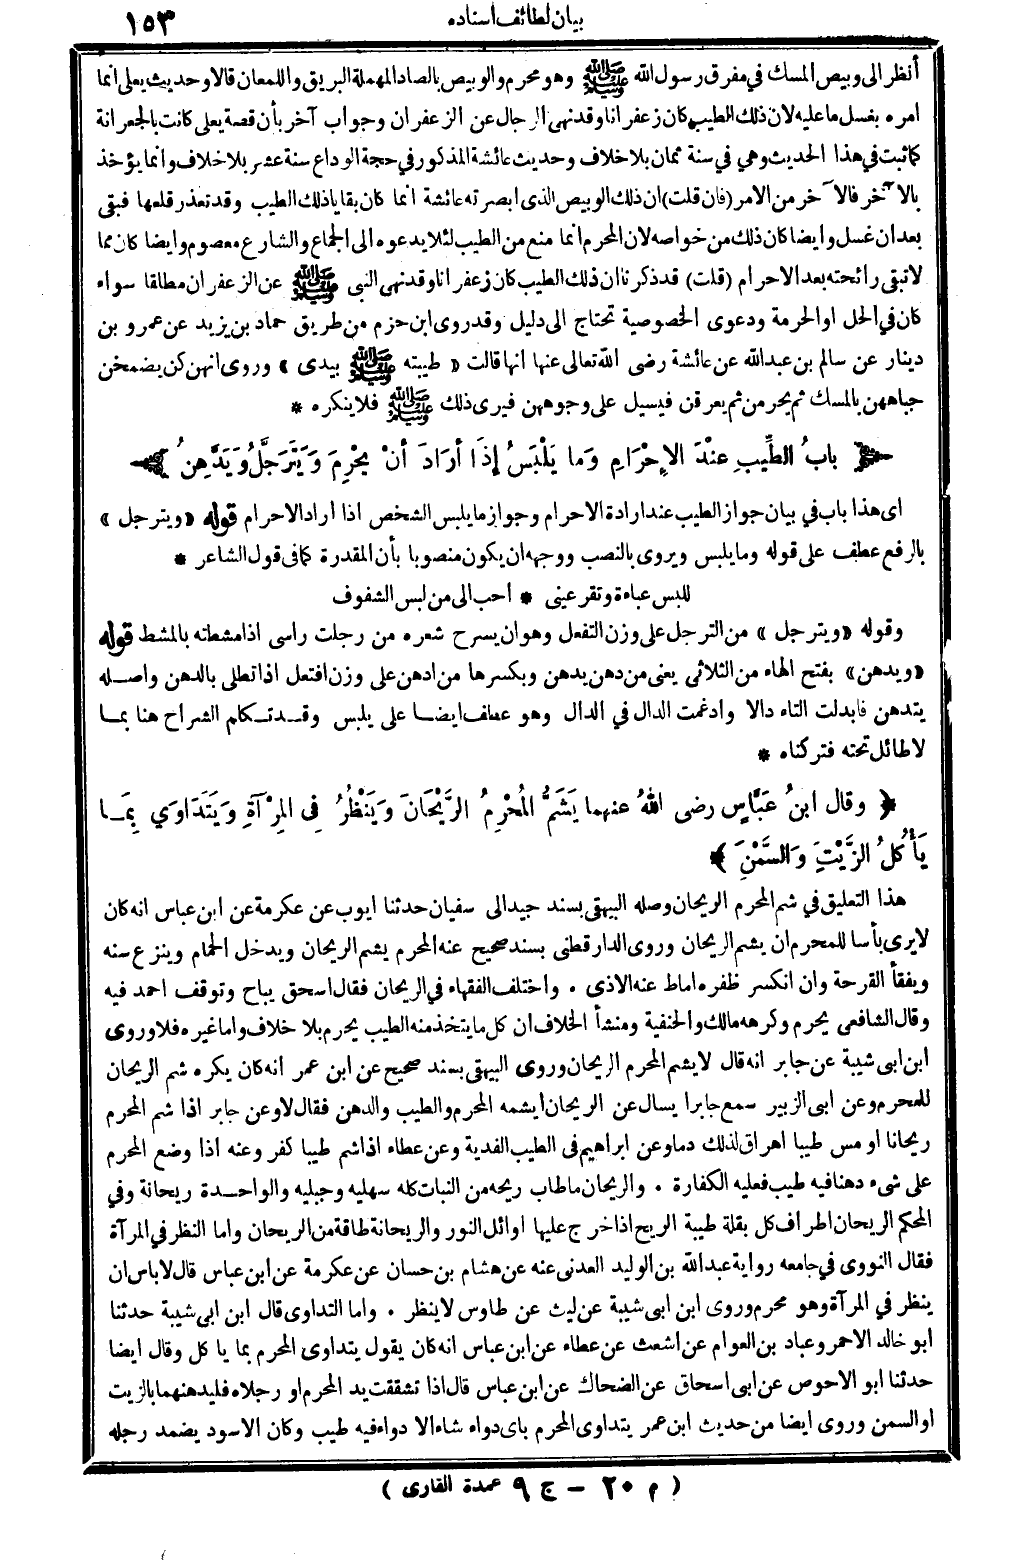 بيان لطائف أسناده ١٥٣
أنظر الى وبيص المسك في مفرق رسول الله ﷺ وهو محرم والوبيص بالصاد المهملة البريق واللمعان قالا وحديث يعلى انما
امره بغسل ما عليه لان ذلك الطيب كان زعفرانا وقد نهى الرجال عن الزعفران وجواب آخر بأن قصة يعلى كانت بالجعرانة
كما ثبت في هذا الحديث وهي في سنة ثمان بلا خلاف وحديث عائشة المذكور في حجة الوداع سنة عشر بلا خلاف وانما يؤخذ
بالآخر فالآخر من الامر (فان قلت) ان ذلك الوبيص الذى ابصرته عائشة انما كان بقايا ذلك الطيب وقد تعذر قلعها فبقى
بعد ان غسل وايضا كان ذلك من خواصه لان المحرم انما منع من الطيب لئلا يدعوه الى الجماع والشارع معصوم وايضا كان مما
لا تبقى رائحته بعد الاحرام (قلت) قد ذكرنا ان ذلك الطيب كان زعفرانا وقد نهى النبى ﷺ عن الزعفران مطلقا سواء
كان في الحل او الحرمة ودعوى الخصوصية تحتاج الى دليل وقد روى ابن حزم من طريق حماد بن يزيد عن عمرو بن
دينار عن سالم بن عبد الله عن عائشة رضى الله تعالى عنها انها قالت « طيبته ﷺ بيدى » وروى انهن كن يضمخن
جباههن بالمسك ثم يحرمن ثم يعرقن فيسيل على وجوههن فيرى ذلك ﷺ فلا ينكره *
﴿ بابُ الطِّيبِ عِنْدَ الإِحْرَامِ وَما يَلْبَسُ إِذَا أَرَادَ أنْ يُحْرِمَ وَيَتَرَجَّلُ وَيَدَّهِنُ ﴾
اى هذا باب في بيان جواز الطيب عند ارادة الاحرام وجواز ما يلبس الشخص اذا أراد الاحرام قوله « ويترجل »
بالرفع عطف على قوله وما يلبس ويروى بالنصب ووجهه ان يكون منصوبا بأن المقدرة كما فى قول الشاعر *
للبس عباءة وتقر عينى * أحب الى من لبس الشفوف
وقوله « ويترجل » من الترجل على وزن التفعل وهو ان يسرح شعره من رجلت راسى اذا مشطته بالمشط قوله
« ويدهن » بفتح الهاء من الثلاثى يعنى من دهن يدهن وبكسرها من ادهن على وزن افتعل اذا تطلى بالدهن واصله
يتدهن فابدلت التاء دالا وادغمت الدال في الدال وهو عطف ايضا على يلبس وقد تكلم الشراح هنا بما
لا طائل تحته فتركناه *
﴿ وقال ابنُ عَبَّاسٍ رضى اللهُ عنهما يَشَمُّ المُحْرِمُ الرَّيْحَانَ وَيَنْظُرُ فِى المِرْآةِ وَيَتَدَاوَي بِمَا
يَأْكُلُ الزَّيْتِ وَالسَّمْنِ ﴾ *
هذا التعليق في شم المحرم الريحان وصله البيهقى بسند جيد الى سفيان حدثنا ايوب عن عكرمة عن ابن عباس انه كان
لا يرى بأسا للمحرم ان يشم الريحان وروى الدارقطنى بسند صحيح عنه المحرم يشم الريحان ويدخل الحمام وينزع سنه
ويفقأ القرحة وان انكسر ظفره اماط عنه الاذى . واختلف الفقهاء في الريحان فقال اسحق يباح وتوقف احمد فيه
وقال الشافعى يحرم وكرهه مالك والحنفية ومنشأ الخلاف ان كل ما يتخذ منه الطيب يحرم بلا خلاف واما غيره فلا وروى
ابن ابى شيبة عن جابر انه قال لا يشم المحرم الريحان وروى البيهقى بسند صحيح عن ابن عمر انه كان يكره شم الريحان
للمحرم وعن ابى الزبير سمع جابرا يسال عن الريحان ايشمه المحرم والطيب والدهن فقال لا وعن جابر اذا شم المحرم
ريحانا او مس طيبا اهراق لذلك دما وعن ابراهيم فى الطيب الفدية وعن عطاء اذا شم طيبا كفر وعنه اذا وضع المحرم
على شىء دهنا فيه طيب فعليه الكفارة . والريحان ما طاب ريحه من النبات كله سهليه وجبليه والواحدة ريحانة وفي
المحكم الريحان اطراف كل بقلة طيبة الريح اذا خرج عليها اوائل النور والريحانة طاقة من الريحان واما النظر في المرآة
فقال النووى في جامعه رواية عبد الله بن الوليد العدنى عنه عن هشام بن حسان عن عكرمة عن ابن عباس قال لا باس ان
ينظر في المرآة وهو محرم وروى ابن ابى شيبة عن ليث عن طاوس لا ينظر . واما التداوى قال ابن ابى شيبة حدثنا
ابو خالد الاحمر وعباد بن العوام عن اشعث عن عطاء عن ابن عباس انه كان يقول يتداوى المحرم بما ياكل وقال ايضا
حدثنا ابو الاحوص عن ابى اسحاق عن الضحاك عن ابن عباس قال اذا تشققت يد المحرم او رجلاه فليدهنهما بالزيت
او السمن وروى ايضا من حديث ابن عمر يتداوى المحرم باى دواء شاء الا دواء فيه طيب وكان الاسود يضمد رجله
( م ٢٠ – ج ٩ عمدة القارى )